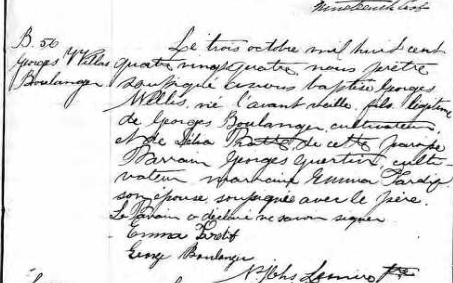 nineteenth
B. 56
Georges Willis
Boulanger
Le trois octobre mil huit cent
quatre vingt quatre, nous prêtre
soussigné avons baptisé Georges
Willis, né l'avant veille, fils légitime
de Georges Boulanger, cultivateur
et de de cette paroisse
Parrain Georges culti-
vateur marraine Emma Tardif
son épouse, soussignée avec le père.
Le Parrain a déclaré ne savoir signer.
Emma Tardif
George Boulanger
Ptre